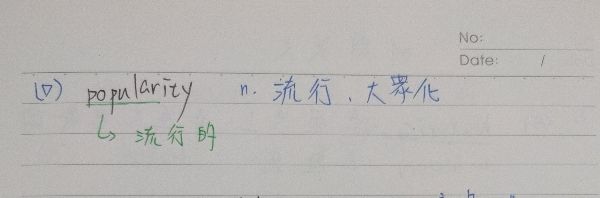 No:
Date: /
(ㄅ) popularity n. 流行、大眾化
↳ 流行的